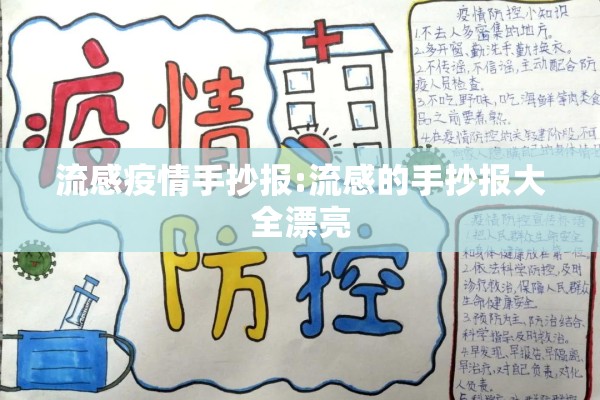 疫情
防控
流感疫情手抄报:流感的手抄报大
全漂亮
疫情防控小知识
1.不去人多密集的地方。
2.多开窗,勤洗手,勤换衣。
2.不传谣,不信谣,主动配合防
疫人员检查。
3.不吃野味,吃海鲜等肉类食
品之前要煮熟。
4.在疫情防控的关键阶段,不可
疫情防控宣传标语
1.把人民群众生命安全
和身体健康放在第一位。
2.依法科学防控,及时
诊疗救治,保障人民群众
生命健康安全
3.预防为主,防治结合,
科学指导,及时救治。
4.早发现,早报告,早隔离,
早治疗,对自己负责,对他
人负责。